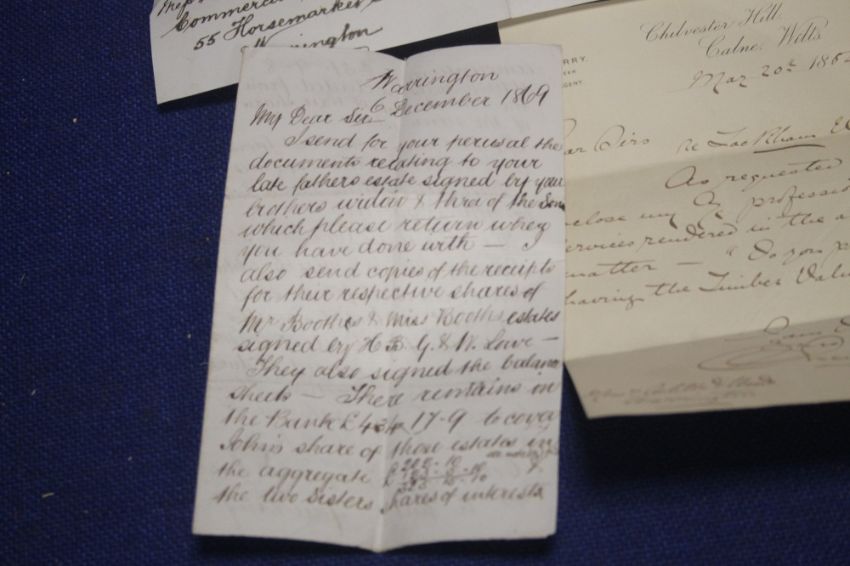 Commercia
55 Horsemarket
Warrington
Warrington
6 December 1869
My Dear Sir
I send for your perusal the
documents relating to your
late fathers estate signed by your
brothers widow & three of the Sons
which please return when
you have done with — I
also send copies of the receipts
for their respective shares of
Mr Booths & Miss Booths estates
signed by H B G. & W. Lowe —
They also signed the balance
sheets — There remains in
the Bank £ 17-9 to cover
John's share of those estates in
the aggregate £
the two Sisters shares of interests
Chilvester Hill,
Calne, Wilts
RRY.
Mar 20th 18
ar Sirs re Lackham E
As requested
close my a/c professio
ervices rendered in the a
matter — "Do you p
having the Timber Valu